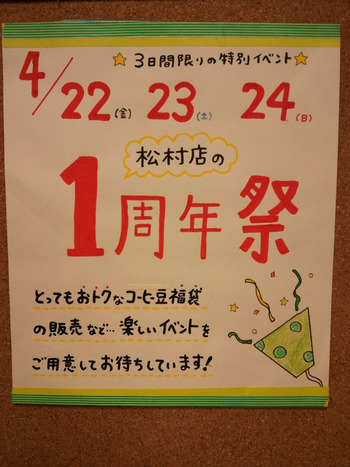 ☆3日間限りの特別イベント☆
4/22(金) 23(土) 24(日)
松村店の
1周年祭
とってもおトクなコーヒー豆福袋
の販売など…楽しいイベントを
ご用意してお待ちしています!